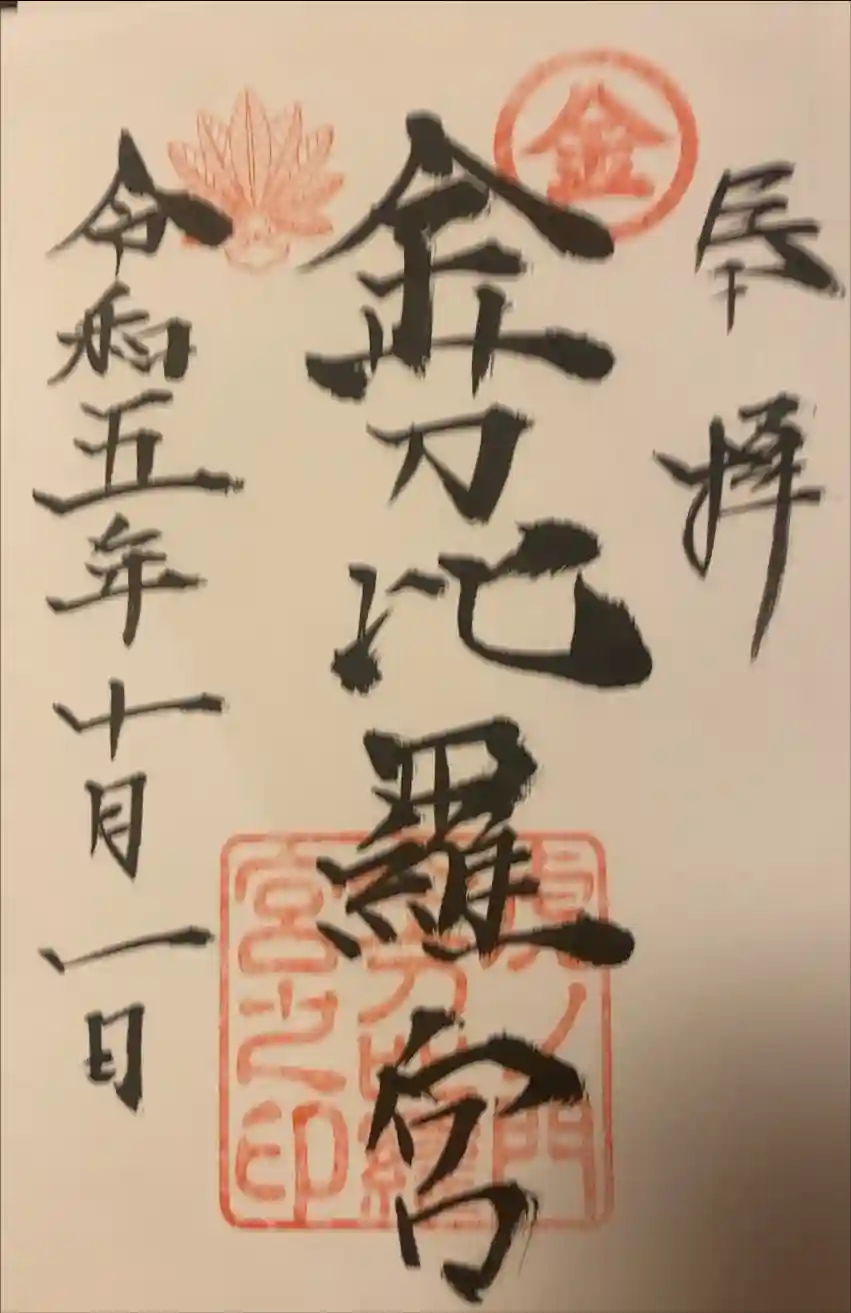 奉拝
金
金刀比羅宮
虎ノ門
金刀比羅
宮之印
令和五年十月一日